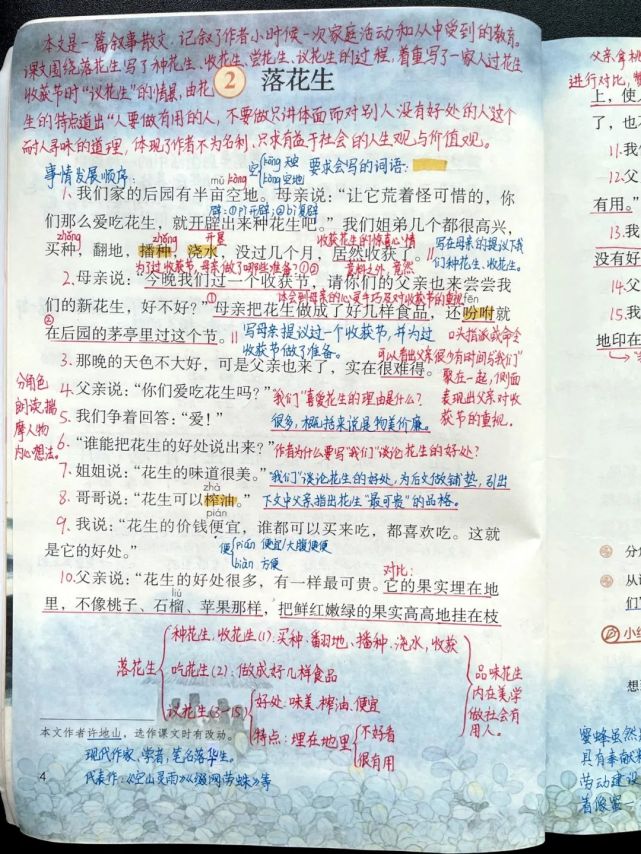 本文是一篇叙事散文，记叙了作者小时候一次家庭活动和从中受到的教育。
课文围绕落花生写了种花生、收花生、尝花生、议花生的过程，着重写了一家人过花生
收获节时“议花生”的情景，由花
2 落花生
生的特点道出“人要做有用的人，不要做只讲体面而对别人没有好处的人”这个
耐人寻味的道理，体现了作者不为名利、只求有益于社会的人生观与价值观。
事情发展顺序：
空 kōng 天空
kòng 空地
要求会写的词语：
mǔ kòng
1.我们家的后园有半亩空地。母亲说：“让它荒着怪可惜的，你
辟：①pì开辟；②bì复辟
们那么爱吃花生，就开辟出来种花生吧。”我们姐弟几个都很高兴，
zhòng zhǒng 开垦 收获花生的惊喜心情
买种，翻地，播种，浇水，没过几个月，居然收获了。
写在母亲的提议下我
们种花生、收花生。
为了过收获节，母亲做了哪些准备？①② 意料之外，竟然
2.母亲说：“今晚我们过一个收获节，请你们的父亲也来尝尝我
体会到母亲的心灵手巧及对收获节的重视
们的新花生，好不好？”母亲把花生做成了好几样食品，还吩咐就
fēn
①
②
在后园的茅亭里过这个节。
写母亲提议过一个收获节，并为过
收获节做了准备。
口头指派或命令
3.那晚的天色不大好，可是父亲也来了，实在很难得。
可以看出父亲很少有时间与“我们”
聚在一起，侧面
表现出父亲对收
获节的重视。
分角色
朗读，揣
摩人物
内心想法。
4.父亲说：“你们爱吃花生吗？”
“我们”喜爱花生的理由是什么？
5.我们争着回答：“爱！”
很多，概括来说是物美价廉。
6.“谁能把花生的好处说出来？”
作者为什么要写“我们”谈论花生的好处？
7.姐姐说：“花生的味道很美。”
“我们”谈论花生的好处，为后文做铺垫，引出
zhà
8.哥哥说：“花生可以榨油。”
下文中父亲指出花生“最可贵”的品格。
pián
9.我说：“花生的价钱便宜，谁都可以买来吃，都喜欢吃。这就
是它的好处。”
便 pián 便宜/大腹便便
biàn 方便
对比：
10.父亲说：“花生的好处很多，有一样最可贵。它的果实埋在地
liú
里，不像桃子、石榴、苹果那样，把鲜红嫩绿的果实高高地挂在枝
落花生
种花生，收花生(1)：买种、翻地、播种、浇水，收获
吃花生(2)：做成好几样食品
议花生(3-15)
好处：味美、榨油、便宜
特点：埋在地里
不好看
很有用
品味花生
内在美，学
做社会有
用人。
本文作者许地山，选作课文时有改动。
现代作家、学者，笔名落华生。
代表作：《空山灵雨》《缀网劳蛛》等
4
父亲拿桃
进行对比，
上，使
了，也
11.我
12.父
有用。”
13.我
没有好
14.父
15.我
地印在
分角
从
们
小练
想
蜜蜂虽然
具有奉献
劳动建设
着像蜜